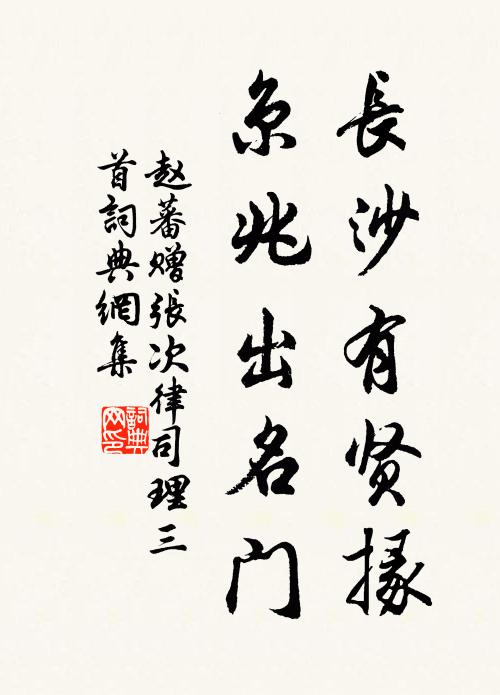 長沙有贤掾
京兆出名门
赵蕃赠張次律司理三
首詞典網集
詞典网印